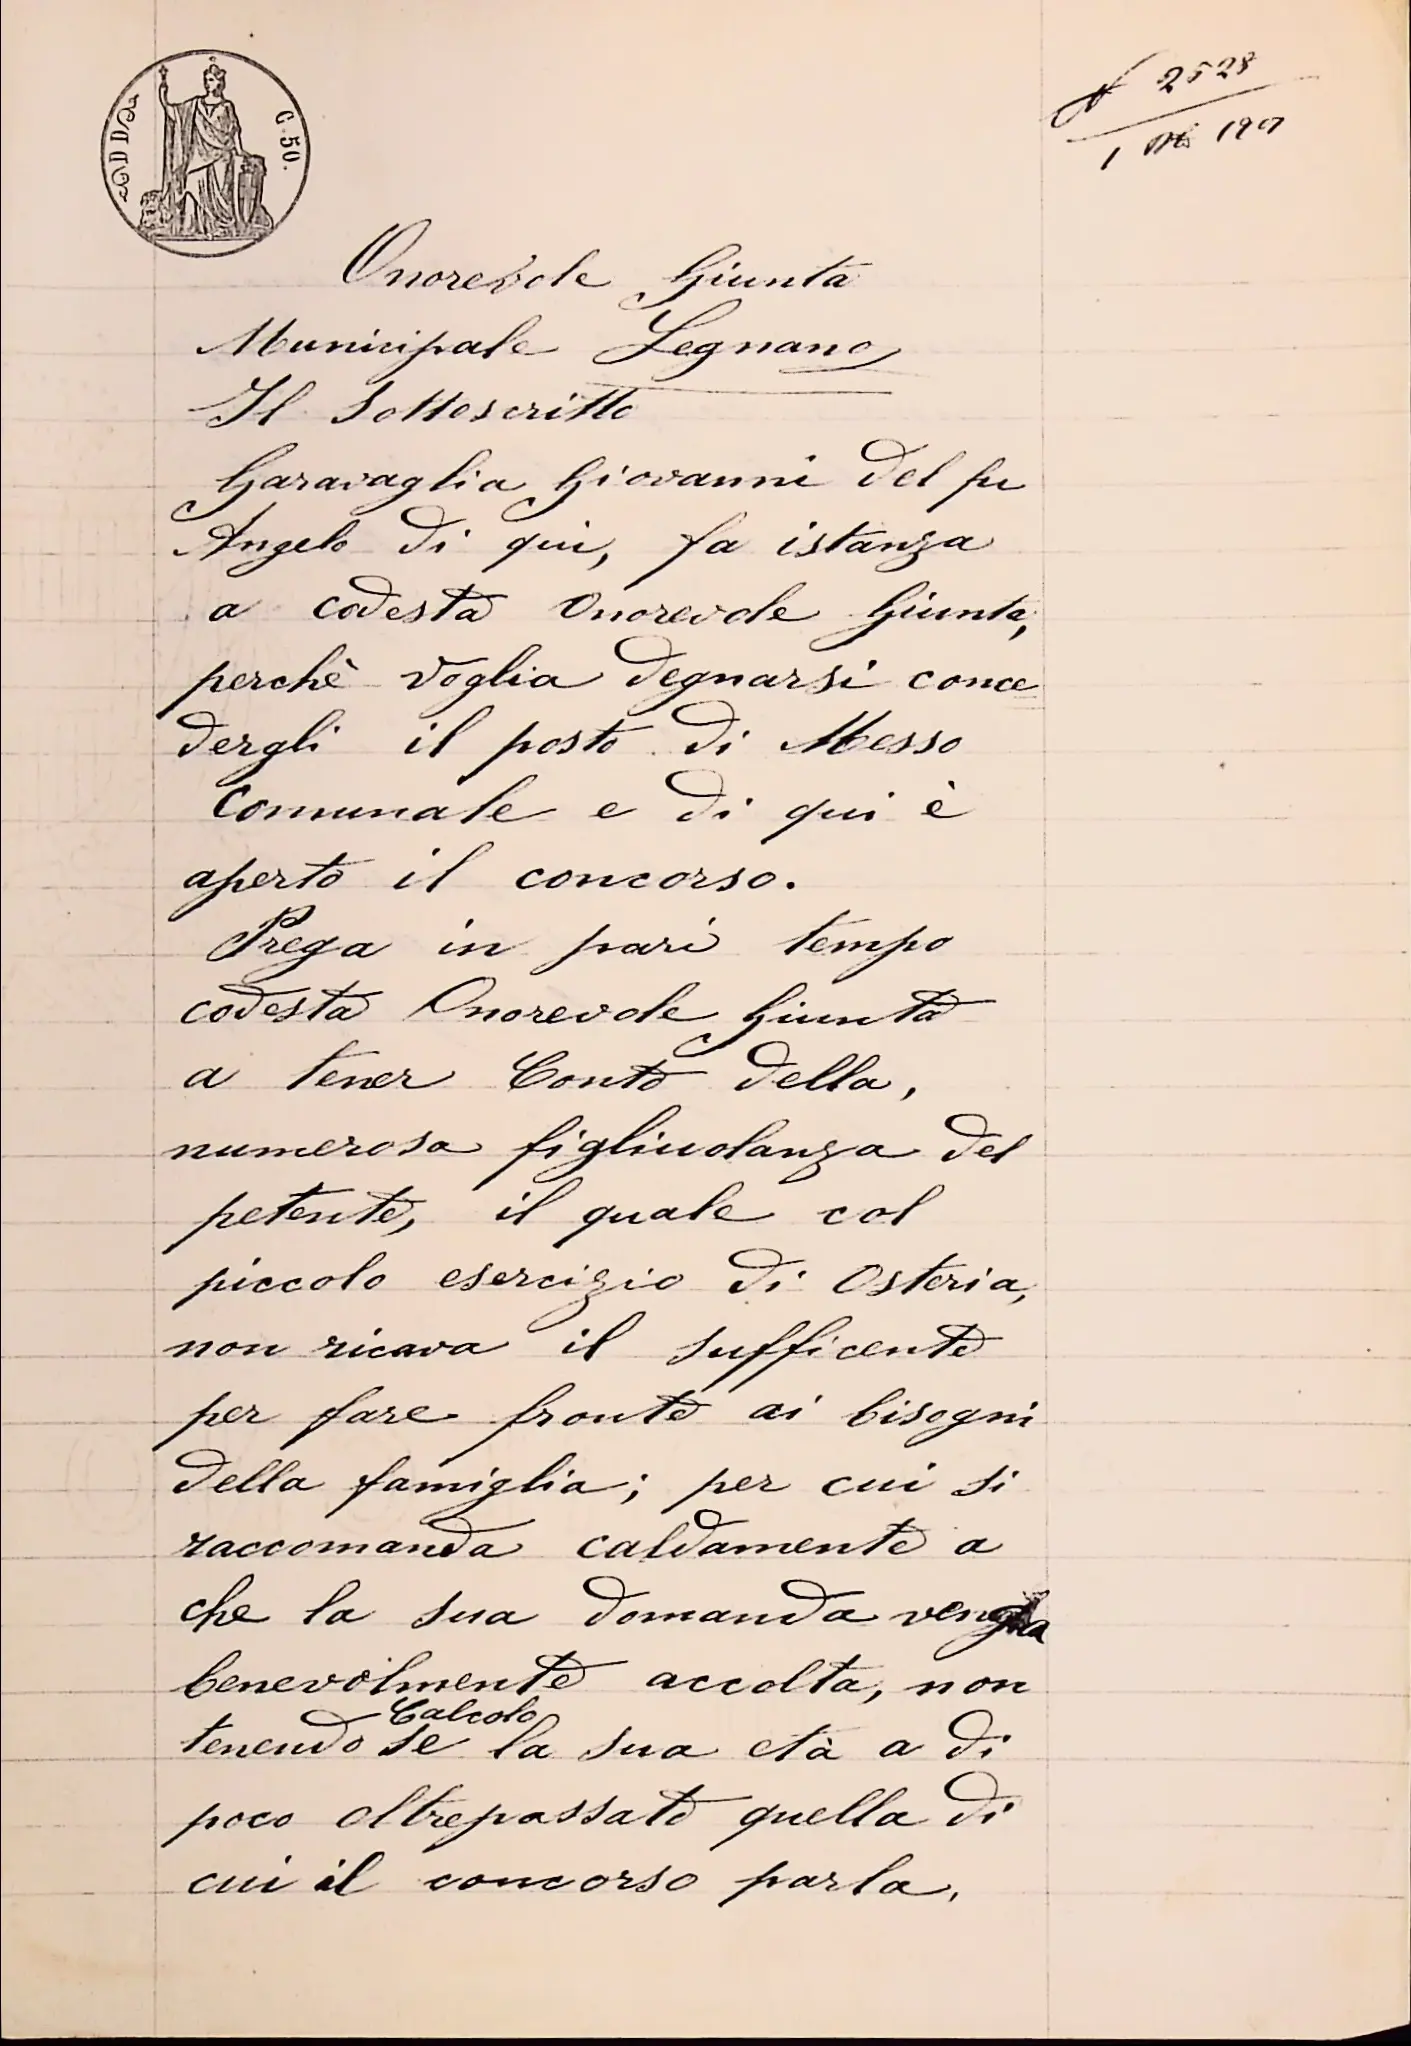 C. 50.
N 2528
1 1901
Onorevole Giunta
Municipale Legnano
Il Sottoscritto
Garavaglia Giovanni del fu
Angelo di qui, fa istanza
a codesta Onorevole Giunta,
perchè voglia degnarsi conce
dergli il posto di Messo
Comunale e di qui è
aperto il concorso.
Prega in pari tempo
codesta Onorevole Giunta
a tener Conto della,
numerosa figliuolanza del
petente, il quale col
piccolo esercizio di Osteria,
non ricava il sufficente
per fare fronte ai bisogni
della famiglia; per cui si
raccomanda caldamente a
che la sua domanda venga
benevolmente accolta, non
Calcolo
tenendo se la sua età a di
poco oltrepassato quella di
cui il concorso parla.